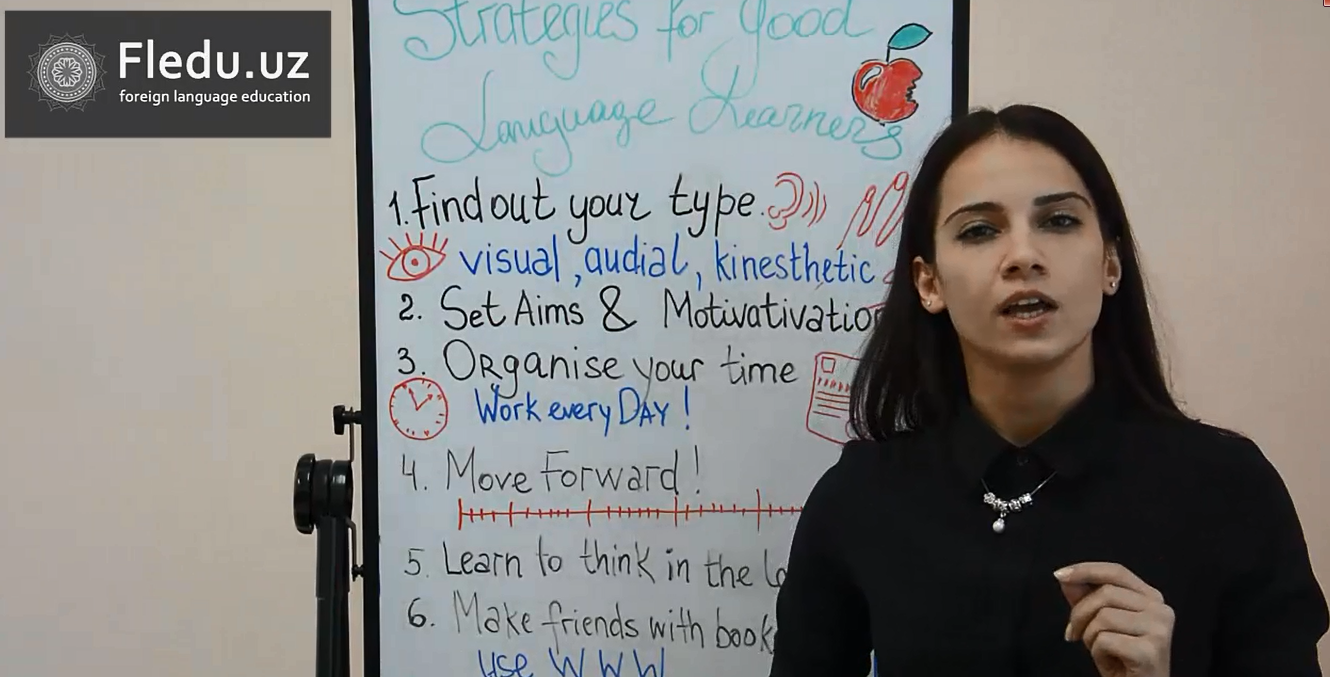 Fledu.uz
foreign language education
Strategies for Good
Language Learners
1. Find out your type.
visual, audial, kinesthetic
2. Set Aims & Motivativatio
3. Organise your time
Work every DAY!
4. Move Forward!
5. Learn to think in the
6. Make friends with book
Use WWW